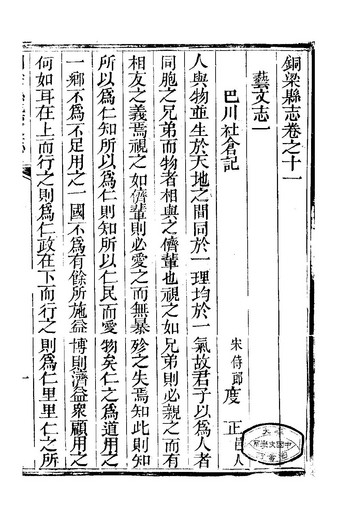 銅梁縣志卷之十一
藝文志一
巴川社倉記
宋侍郎度 正邑人
人與物並生於天地之間同於一理均於一氣故君子以爲人者
同胞之兄弟而物者相與之儕輩也視之如兄弟則必親之而有
相友之義焉視之如儕輩則必愛之而無暴殄之失焉知此則知
所以爲仁知所以爲仁則知所以仁民而愛物矣仁之爲道用之
一鄉不爲不足用之一國不爲有餘所施益博則濟益衆顧用之
何如耳在上而行之則爲仁政在下而行之則爲仁里里仁之所
一